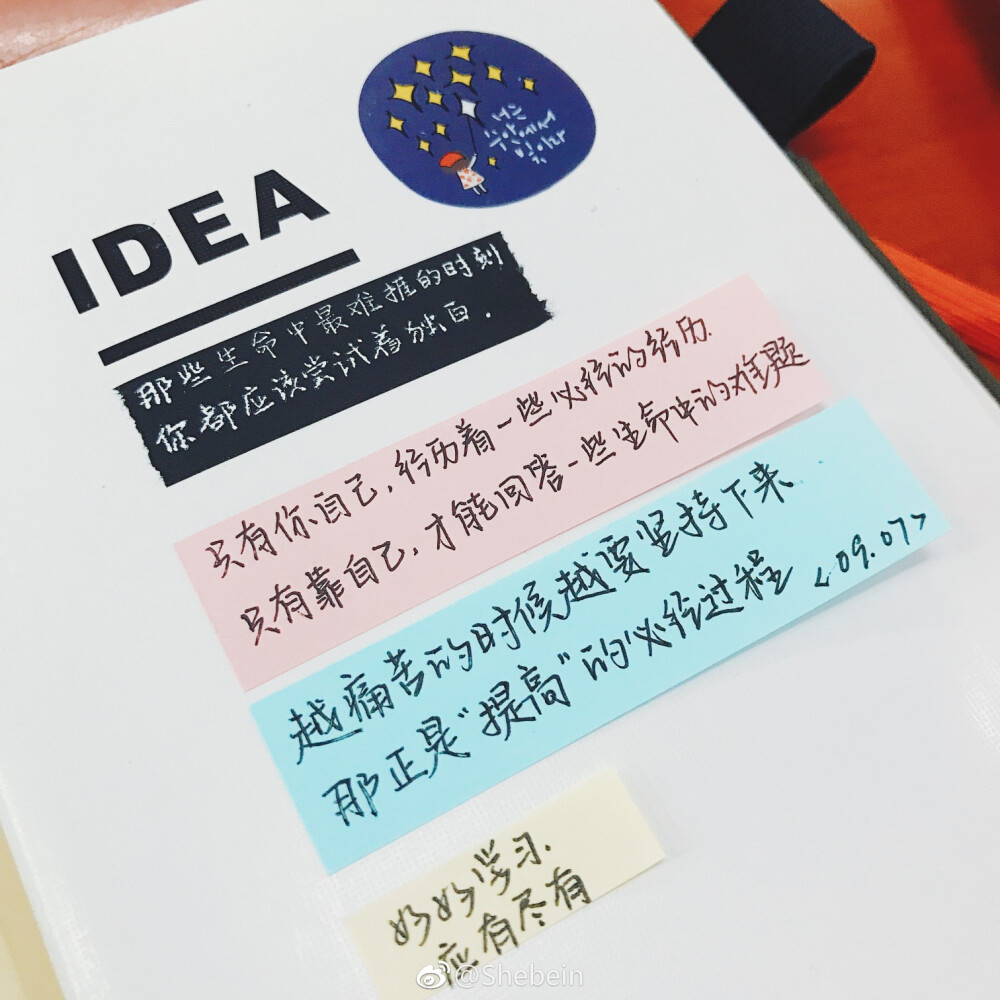 IDEA
那些生命中最难捱的时刻
你都应该尝试着独白.
只有你自己,经历着一些必经的经历.
只有靠自己,才能回答一些生命中的难题
越痛苦的时候越要坚持下来.
那正是“提高”的必经过程 <09.07>
好好学习.
应有尽有
@Shebein